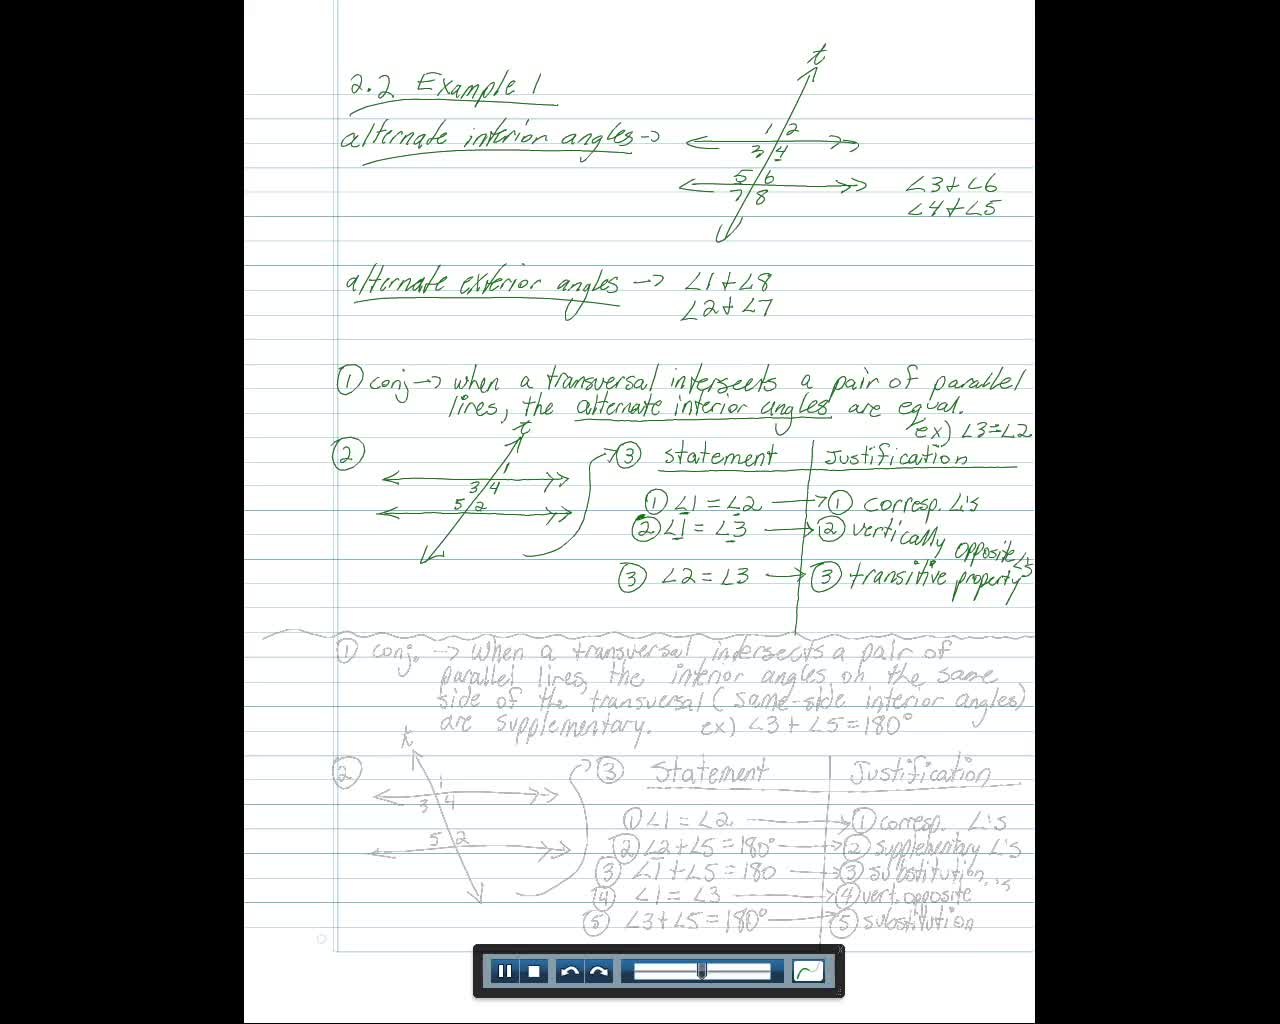 2.2 Example 1
t
alternate interior angles →
1 2
3 4
5 6
7 8
∠3 + ∠6
∠4 + ∠5
alternate exterior angles → ∠1 + ∠8
∠2 + ∠7
① conj → when a transversal intersects a pair of parallel
lines, the alternate interior angles are equal.
ex) ∠3=∠2
②
t
1
3 4
5 2
③ Statement Justification
① ∠1 = ∠2 → ① corresp. ∠'s
② ∠1 = ∠3 → ② vertically opposite ∠'s
③ ∠2 = ∠3 → ③ transitive property
① conj. → When a transversal intersects a pair of
parallel lines, the interior angles on the same
side of the transversal (same-side interior angles)
are supplementary. ex) ∠3 + ∠5 = 180°
②
t
1
3 4
5 2
③ Statement Justification
① ∠1 = ∠2 → ① corresp. ∠'s
② ∠2 + ∠5 = 180° → ② supplementary ∠'s
③ ∠1 + ∠5 = 180 → ③ substitution
④ ∠1 = ∠3 → ④ vert. opposite ∠'s
⑤ ∠3 + ∠5 = 180° → ⑤ substitution